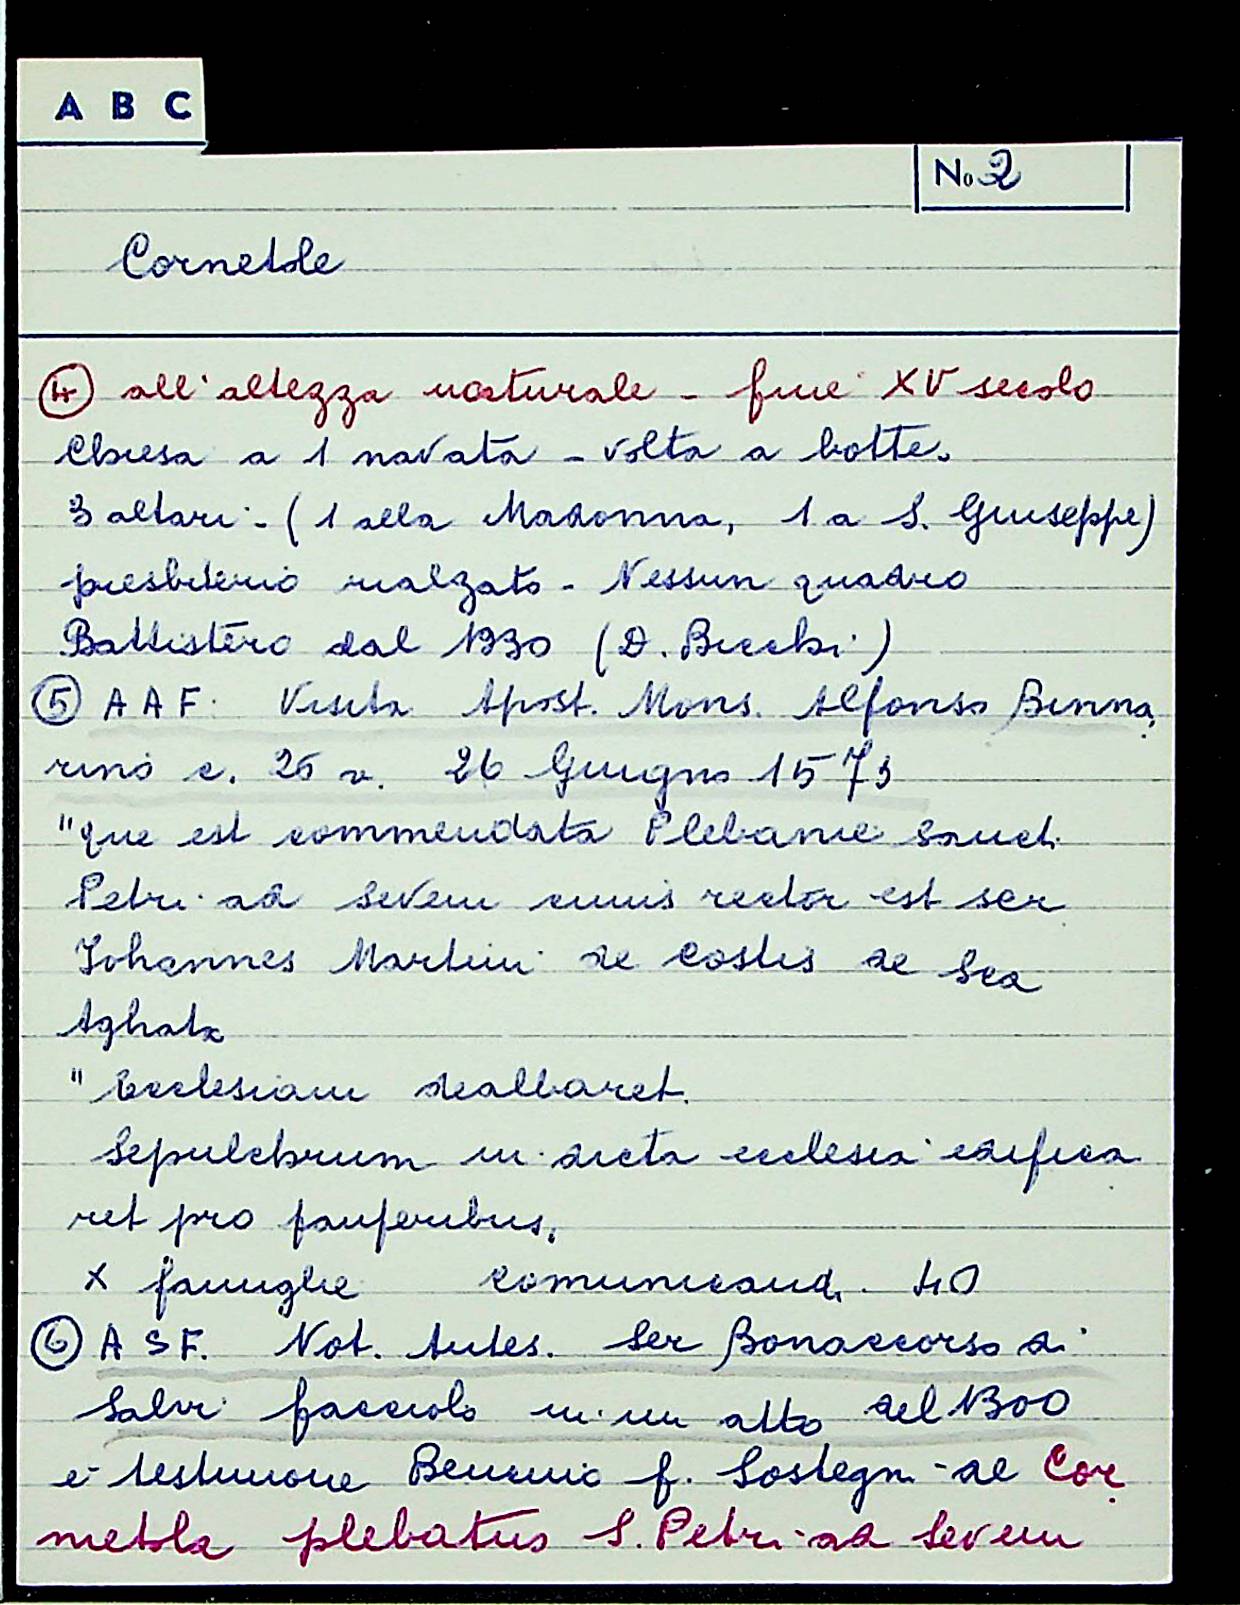 A B C
No 2
Cornetole
④ all'altezza naturale - fine XV secolo
Chiesa a 1 navata - volta a botte.
3 altari - (1 alla Madonna, 1 a S. Giuseppe)
presbiterio rialzato - Nessun quadro
Battistero dal 1930 (D. Bicchi)
⑤ A A F. Visita Apost. Mons. Alfonso Binna
rino c. 26 v. 26 Giugno 1575
"que est commendata Plebanie Sancti
Petri ad Sevem cuius rector est ser
Iohannes Martini de Costis de Sca
Aghata
" Ecclesiam dealbaret.
Sepulchrum in dicta ecclesia edifica
ret pro pauperibus.
x famiglie comunicand. 40
⑥ A S F. Not. Antes. Ser Bonaccorso di
Salvi facciolo in un atto del 1300
è testimone Benincio f. Sostegni de Cor
netola plebatus S. Petri ad Sevem